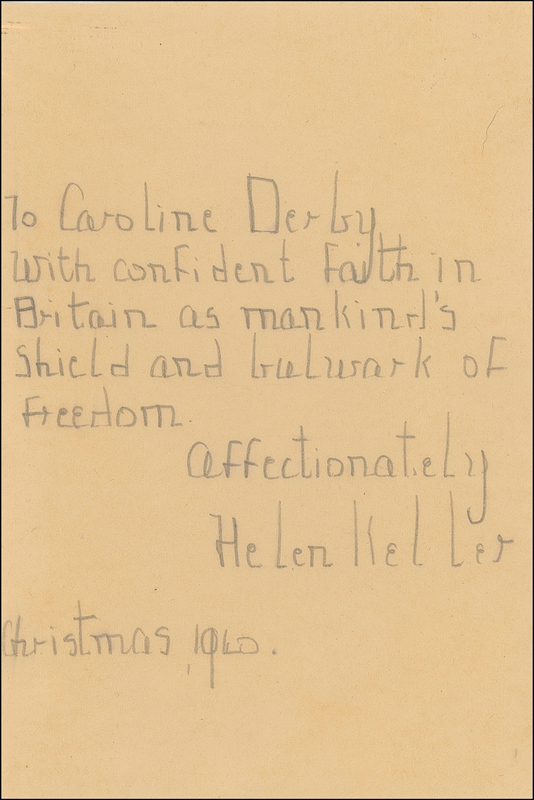 To Caroline Derby
With confident faith in
Britain as mankind's
Shield and bulwark of
Freedom.
Affectionately
Helen Keller
Christmas, 1940.